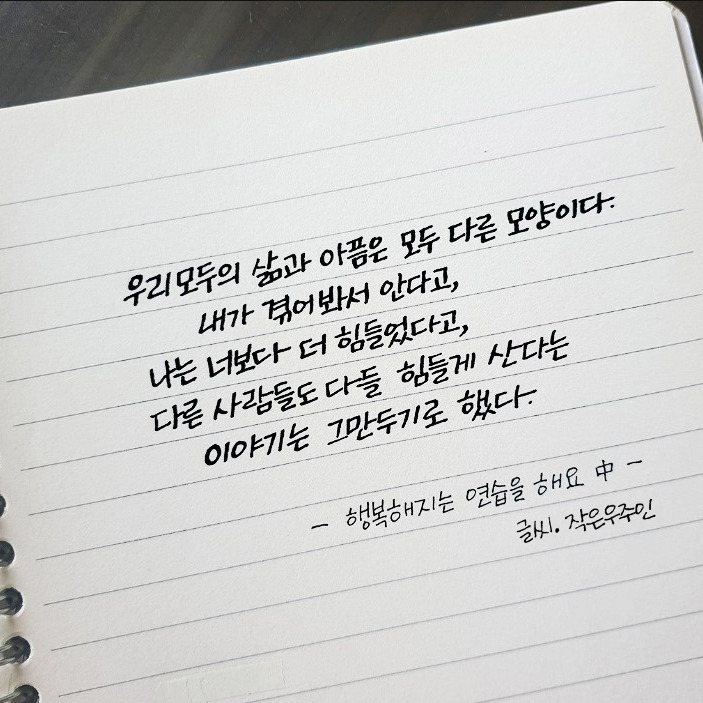 우리 모두의 삶과 아픔은 모두 다른 모양이다.
내가 겪어봐서 안다고,
나는 너보다 더 힘들었다고,
다른 사람들도 다들 힘들게 산다는
이야기는 그만두기로 했다.
- 행복해지는 연습을 해요 中 -
글씨. 작은우주인